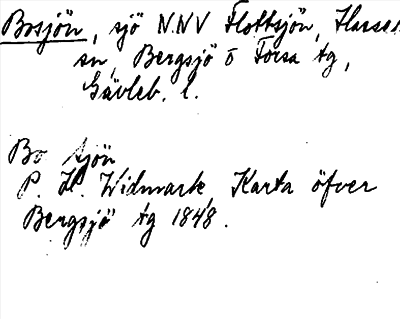 Bosjön, sjö NNV Flottsjön, Hassela
sn, Bergsjö o Forsa tg,
Gävleb. l.
Bo sjön
P. H. Widmark, Karta öfver
Bergsjö tg 1848.